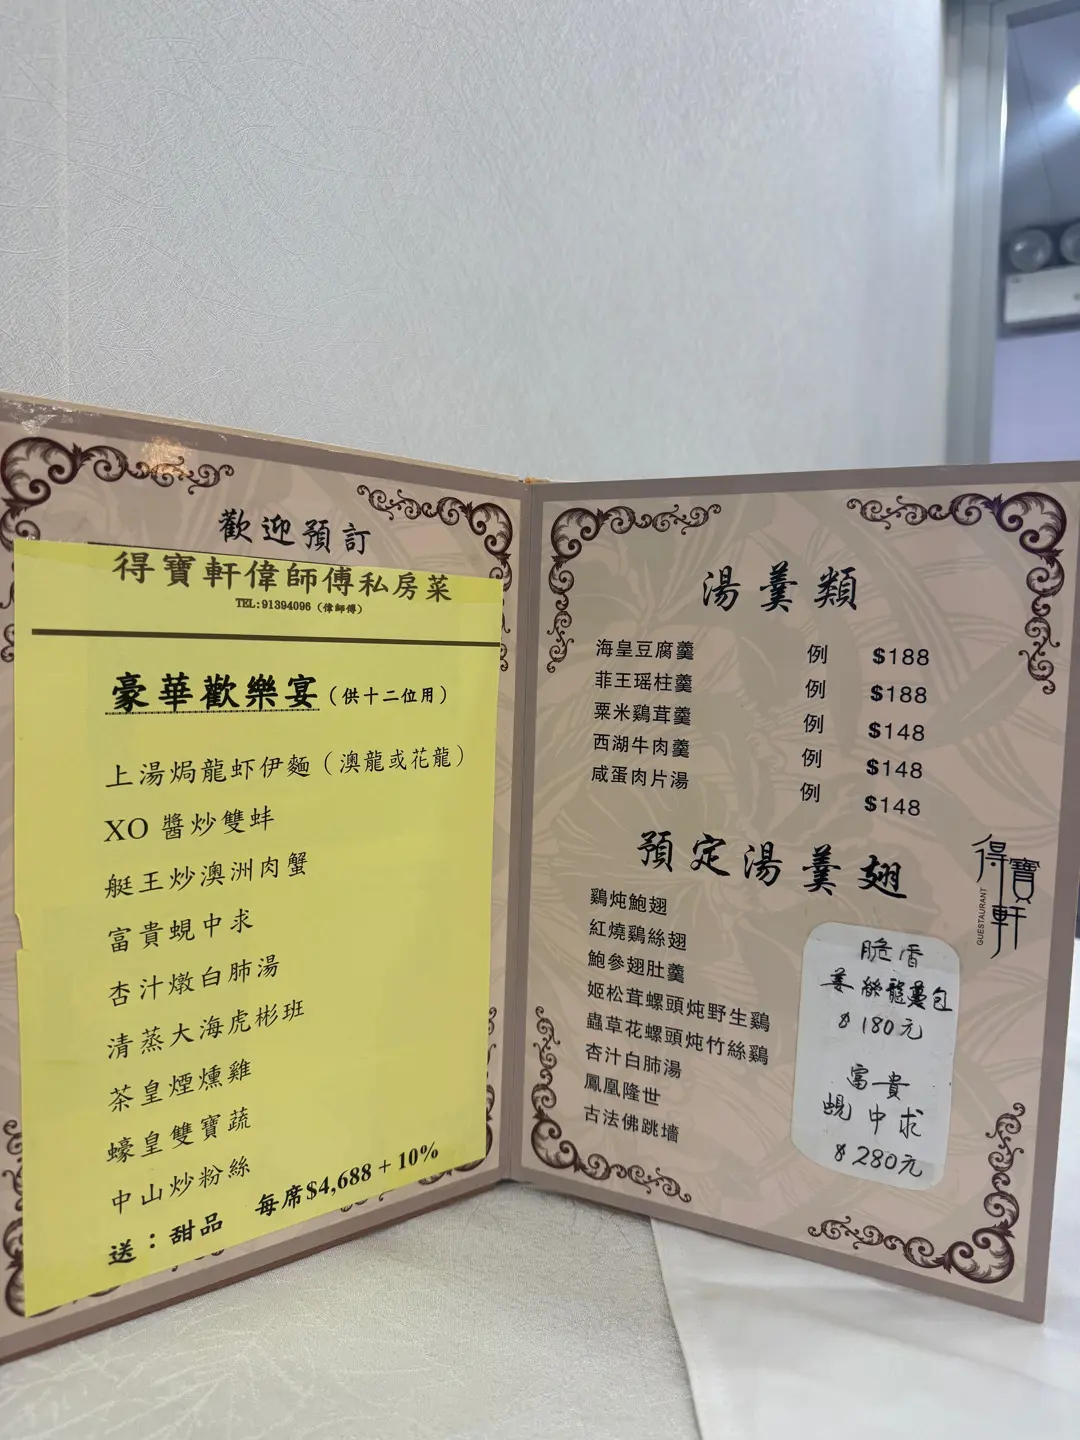 歡迎預訂
得寶軒偉師傅私房菜
TEL:91394096（偉師傅）
豪華歡樂宴（供十二位用）
上湯焗龍虾伊麵（澳龍或花龍）
XO 醬炒雙蚌
艇王炒澳洲肉蟹
富貴蜆中求
杏汁燉白肺湯
清蒸大海虎彬班
茶皇煙燻雞
蠔皇雙寶蔬
中山炒粉絲
送：甜品 每席$4,688 + 10%
湯羹類
海皇豆腐羹 例 $188
菲王瑶柱羹 例 $188
粟米鷄茸羹 例 $148
西湖牛肉羹 例 $148
咸蛋肉片湯 例 $148
預定湯羹翅
鷄炖鮑翅
紅燒鷄絲翅
鮑參翅肚羹
姬松茸螺頭炖野生鷄
蟲草花螺頭炖竹絲鷄
杏汁白肺湯
鳳凰隆世
古法佛跳墻
得寶軒
GUESTAURANT
脆香
姜絲龍躉包
$180元
富貴
蜆中求
$280元